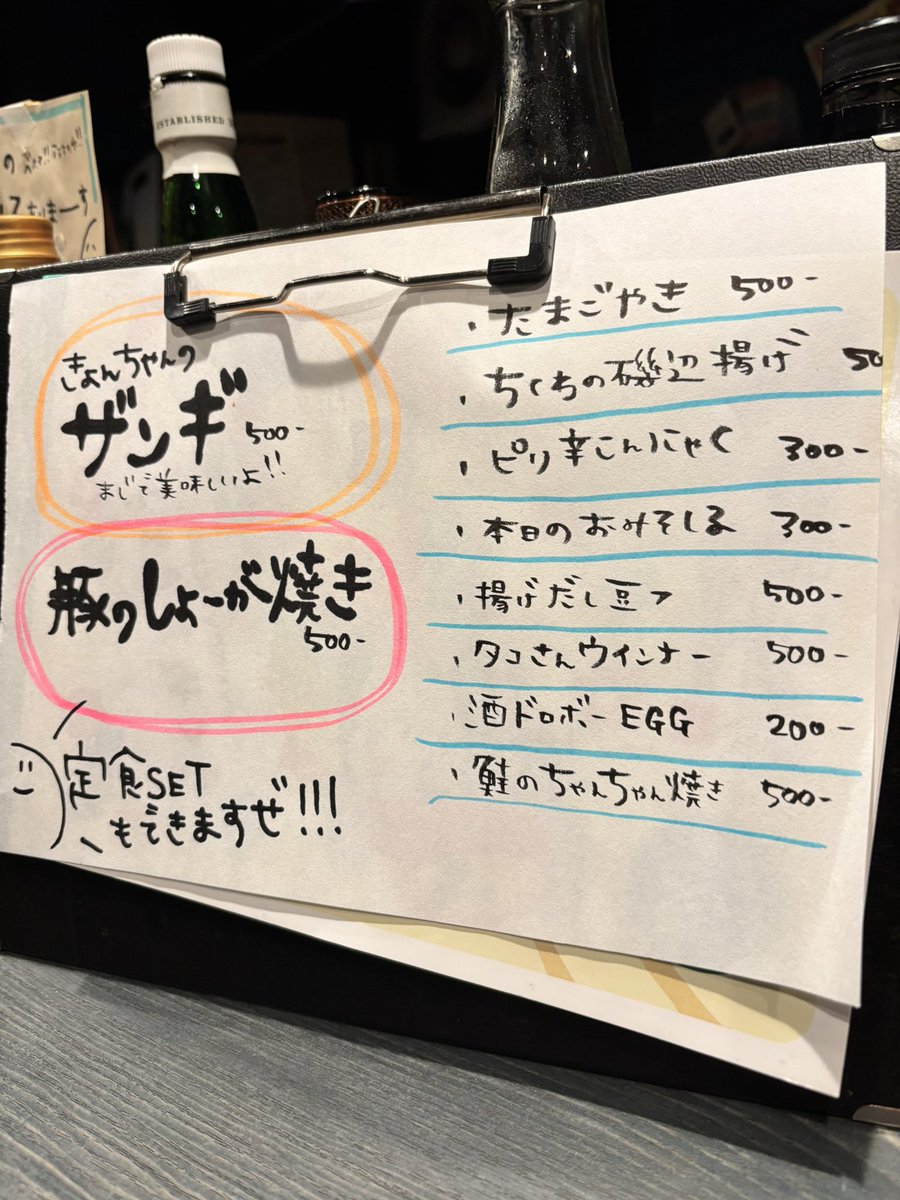 ESTABLISHED
きょんちゃんの
ザンギ 500-
まじで美味しいよ!!
豚のしょーが焼き
500-
定食SET
もできますぜ!!!
・たまごやき 500-
・ちくわの磯辺揚げ 50
・ピリ辛こんにゃく 300-
・本日のおみそしる 300-
・揚げだし豆フ 500-
・タコさんウインナー 500-
・酒ドロボーEGG 200-
・鮭のちゃんちゃん焼き 500-